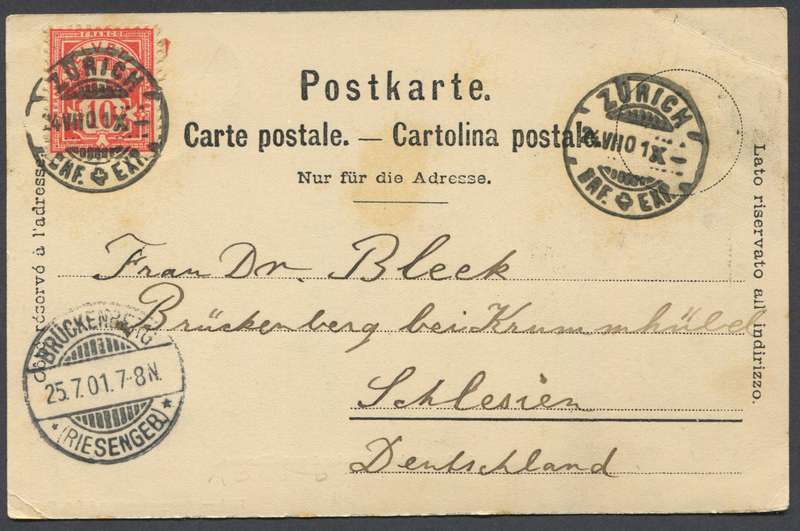 FRANCO
HELVETIA
10
ZÜRICH
24.VII.01.X
BRF. EXP.
Postkarte.
Carte postale. — Cartolina postale.
Nur für die Adresse.
ZÜRICH
24.VII.01.X
BRF. EXP.
Côté réservé à l'adresse.
Lato riservato all'indirizzo.
Frau Dr. Bleck
Brückenberg bei Krummhübel
Schlesien
Deutschland
BRÜCKENBERG
25.7.01.7-8N.
* (RIESENGEB.) *